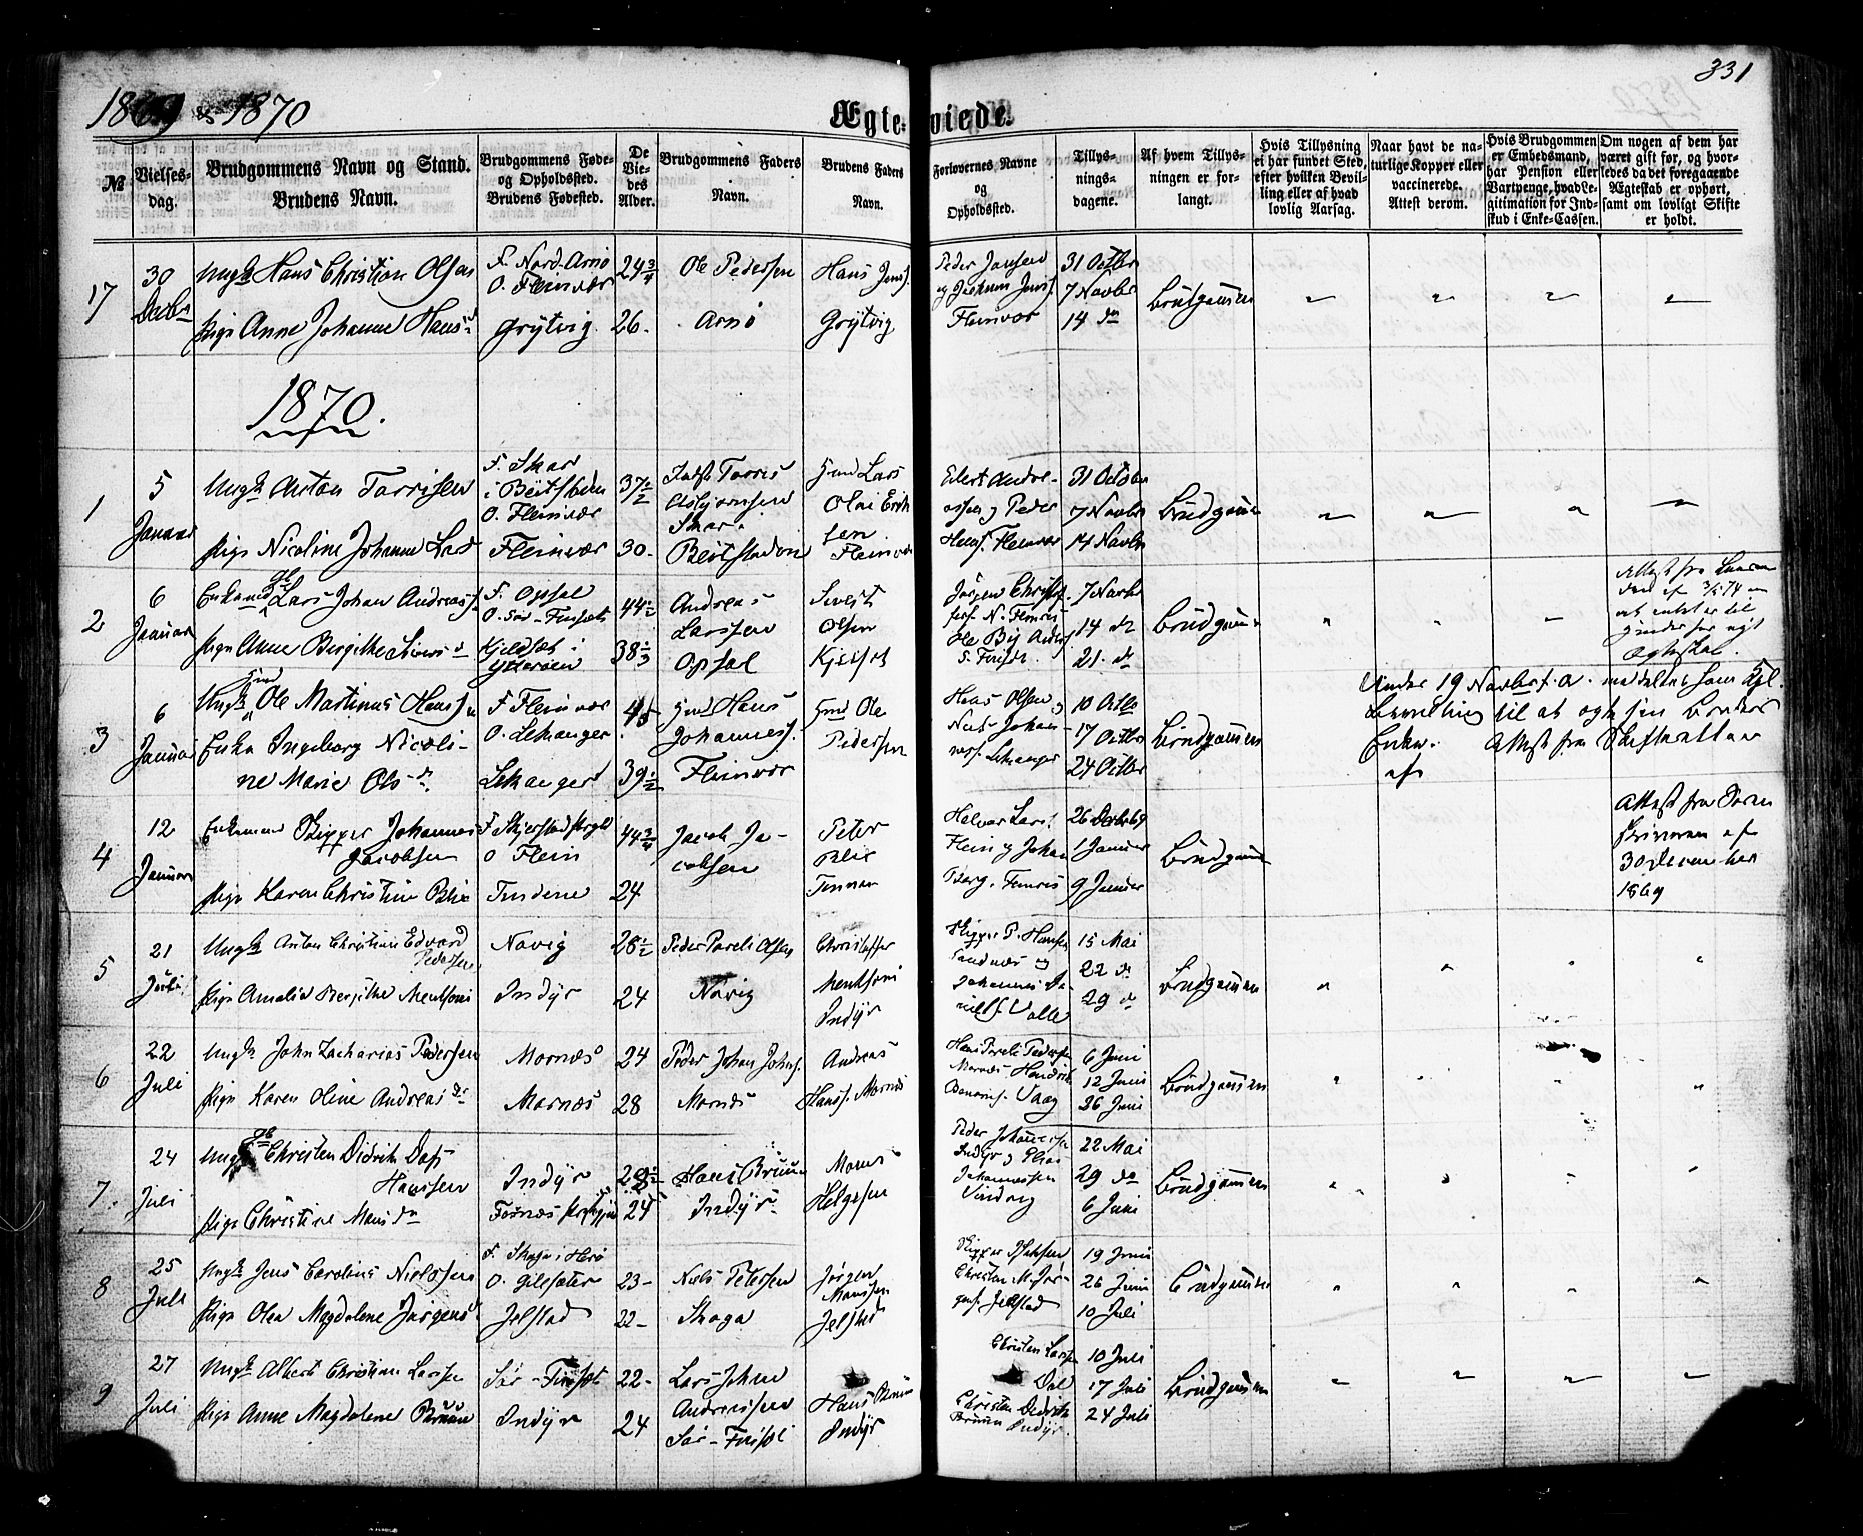 1869 & 1870
331
Ægte-viede.
№
Vielses-
dag.
Brudgommens Navn og Stand.
Brudens Navn.
Brudgommens Føde-
og Opholdssted.
Brudens Fødested.
De
Vie-
des
Alder.
Brudgommens Faders
Navn.
Brudens Faders
Navn.
Forlovernes Navne
og
Opholdssted.
Tillys-
nings-
dagene.
Af hvem Tillys-
ningen er for-
langt.
Hvis Tillysning
ei har fundet Sted,
efter hvilken Bevil-
ling eller af hvad
lovlig Aarsag.
Naar havt de na-
turlige Kopper eller
vaccinerede.
Attest derom.
Hvis Brudgommen
er Embedsmand,
har Pension eller
Vartpenge, hvad Le-
gitimation for Ind-
skud i Enke-Cassen.
Om nogen af dem har
været gift før, og hvor-
ledes da det foregaaende
Ægteskab er ophørt,
samt om lovligt Skifte
er holdt.
17
30
Decbr
Ungk Hans Christian Olsen
Pige Anne Johanne Hansd
F. Nord-Arnø
O. Fleinvær
Grytvig
24 3/4
26
Ole Pedersen
Arnø
Hans Jens.
Grytvig
Peder Jansen
Fleinvær
31 Octbr
7 Novbr
14 do
Brudgommen
1870.
1
5
Januar
Ungk Anton Torrisen
Pige Nicoline Johanne Larsd
F. Skar
i Beitstaden
O. Fleinvær
Fleinvær
37 1/2
30
Torris
Asbjørnsen
Skar
Beitstaden
Gmd Lars
Olai Erik
sen
Fleinvær
Eilert Andre-
assen og Peder
Hans. Fleinvær
31 October
7 Novbr
14 Novbr
Brudgommen
2
6
Januar
Enkemd Lars Johan Andreass.
Pige Anne Birgithe Siversd
F. Opsal
O. Sør-Finsæt
Kjelsæt i
Ytterøen
44 1/2
38 1/3
Andreas
Larssen
Opsal
Sivert
Olsen
Kjelsæt
Jørgen Christof
7 Novbr
14 do
21. do
Brudgommen
Attest fra
Ægteskab.
3
6
Januar
Gmd
Ungk Ole Martinus Hanssen
Enke Ingeborg Nicoli-
ne Marie Olsdr.
F. Fleinvær
O. Lekanger
Lekanger
45
39 1/2
Gmd Hans
Johanness.
Fleinvær
Gmd Ole
Pedersen
Hans Olsen og
Nils Johan-
nes. Lekanger
10 Octbr
17 Octbr
24 Octbr
Brudgommen
Under 19 Novbr f. a. meddeltes ham Kgl.
Bevilling til at ægte sin Broders
Enke. Attest fra Skifteretten
4
12
Januar
Enkemand Skipper Johannes
Jacobsen
Pige Karen Christine Blix
F. Skjerstad Prgld
O Flein
Tindene
44 3/4
24
Jacob Ja-
cobsen
Peter
Blix
Helver Lars.
Flein og Johan
Berg. Femris
26 Decbr 69
1 Januar
9 Januar
Brudgommen
Attest fra Soren
skriveren af
30 December
1869
5
21
Juli
Ungk Anton Christian Edvard
Pedersen
Pige Amalie Bergithe Mentsoni
Novig
Indyr
28 1/2
24
Peder Pareli Olsen
Novig
Christoffer
Mentsoni
Indyr
Skipper P. Hansen
Sandnæs og
Johannes Da-
niels. Valle
15 Mai
22 do
29 do
Brudgommen
6
22
Juli
Ungk John Zacharias Pedersen
Pige Karen Oline Andreasdr
Mornæs
Mornæs
24
28
Peder Johan Johns.
Mornæs
Andreas
Hans. Mornæs
Hans Pareli Pedersen
Mornæs Hendrik
Vaag
6 Juni
12 Juni
26 Juni
Brudgommen
7.
24
Juli
Ungk Christen Didrik Dass
Hanssen
Pige Christine Monsdr
Indyr
28 1/2
24
Hans Bruun
Indyr
Mons
Helgesen
Peder Johannesen
Indyr og Elias
Johannessen
Vindvig
22 Mai
29 do
6 Juni
Brudgommen
8
25
Juli
Ungk Jens Carolius Nielssen
Pige Olea Magdalene Jørgensd
F. Skaga i Herø
O. Gilesæter
Jelstad
23
22
Niels Petersen
Skaga
Jørgen
Monssen
Jelstad
Christen M. Jør-
gens. Jelstad
19 Juni
26 Juni
10 Juli
Brudgommen
9
27
Juli
Ungk Albert Christian Larsen
Pige Anne Magdalene Bruun
Sør-Finsæt
Indyr
22
24
Lars Johan
Andreassen
Sør-Finsæt
Hans Bruun
Indyr
Christen Larssen
Dal
Christen Didrik
Bruun Indyr.
10 Juli
17 Juli
24 Juli
Brudgommen